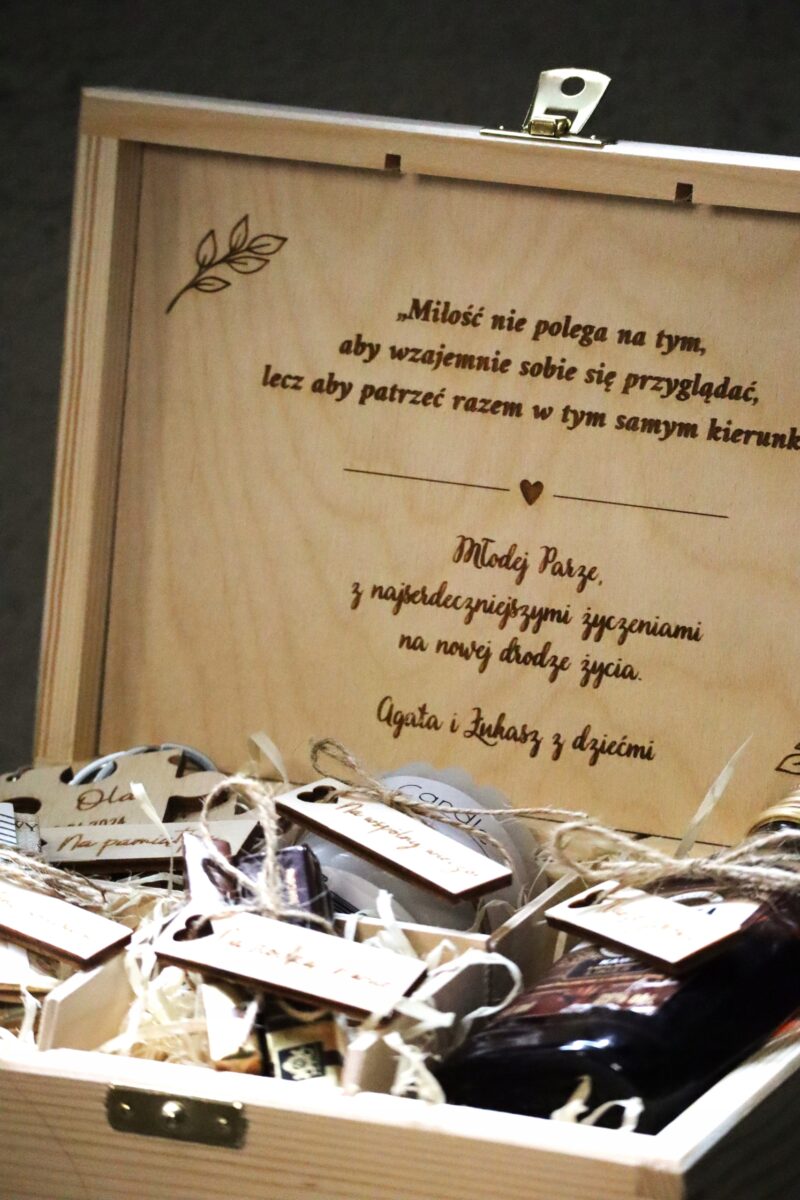 „Miłość nie polega na tym,
aby wzajemnie sobie się przyglądać,
lecz aby patrzeć razem w tym samym kierunk
Młodej Parze,
z najserdeczniejszymi życzeniami
na nowej drodze życia.
Agata i Łukasz z dziećmi
Ola
2024
Na pamiątkę
Candle
Na wspólny wieczór